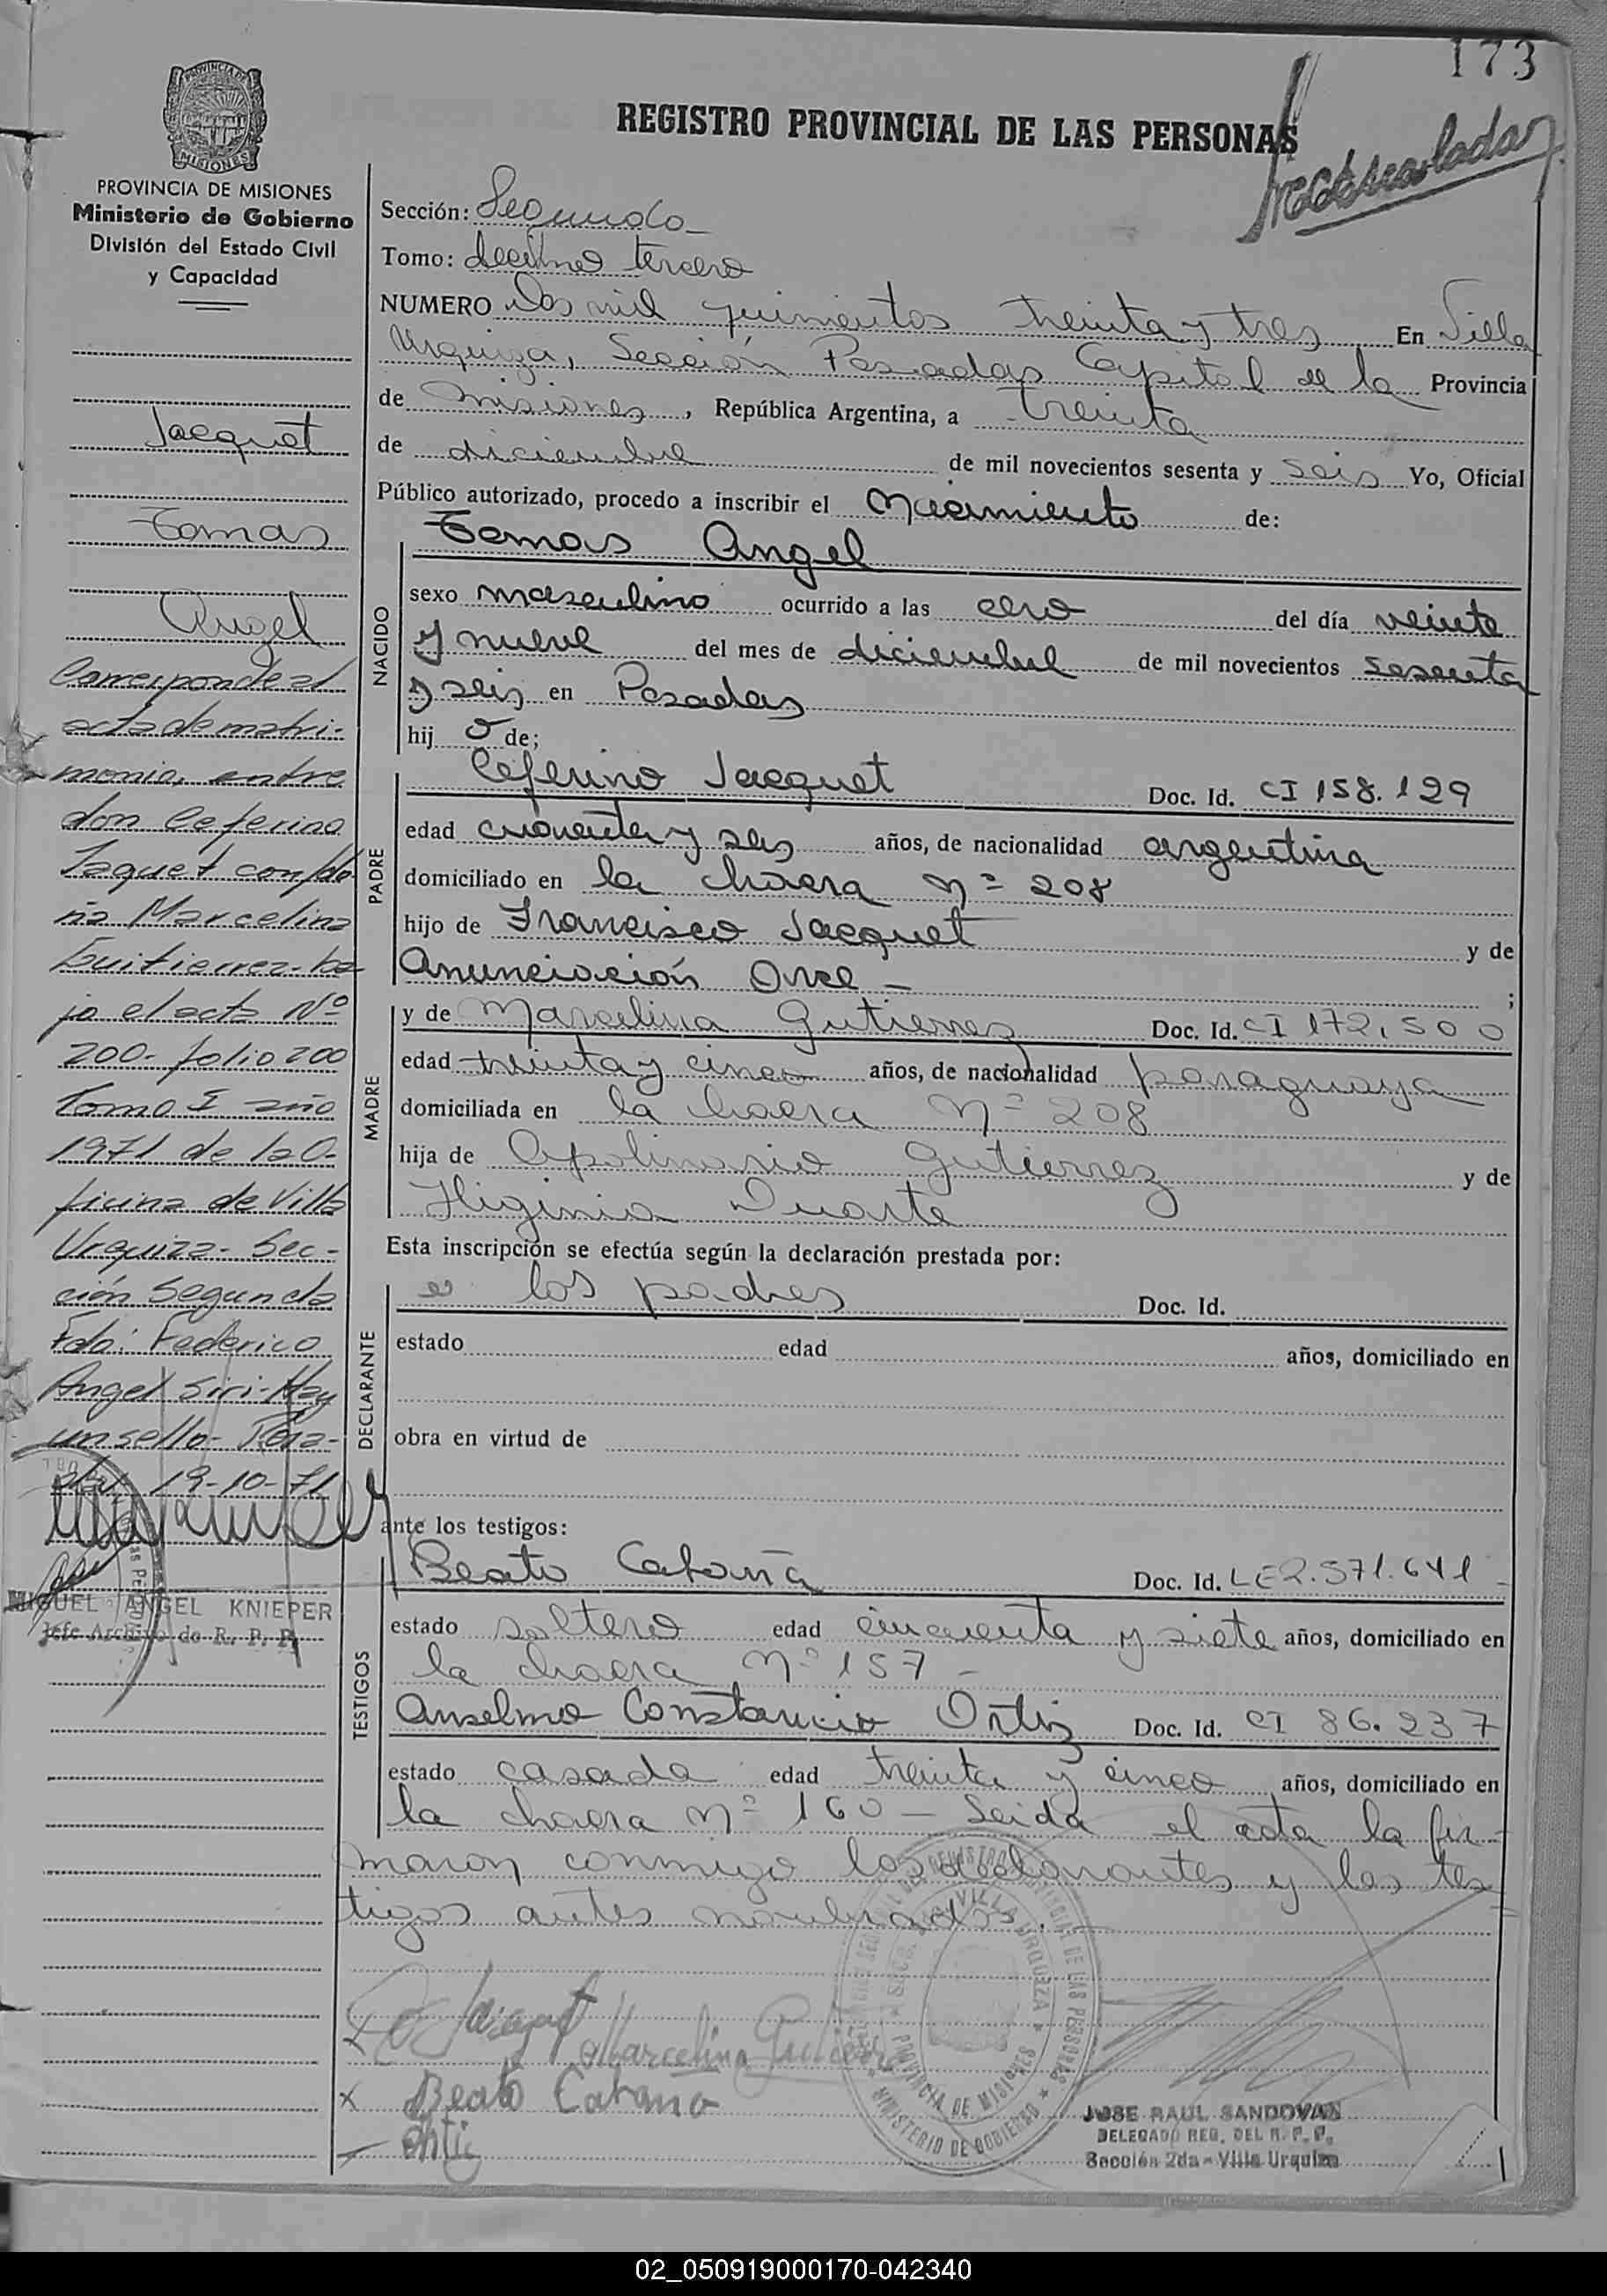 173
REGISTRO PROVINCIAL DE LAS PERSONAS
PROVINCIA DE MISIONES
PROVINCIA DE MISIONES
Ministerio de Gobierno
División del Estado Civil
y Capacidad
Jacquet
Tomas
Angel
Corresponde al
acta de matri-
monio, entre
don Ceferino
Jaquet con/do
ña Marcelina
Guitierrez- ba
jo el acta Nº
200- folio 200
Tomo I año
1971 de la O-
ficina de Villa
Urquiza- Sec-
ción Segunda
Fdo: Federico
Angel Siri- Hay
un sello- Posa-
das 19-10-71
MIGUEL ANGEL KNIEPER
Jefe Archivo de R. P. P.
Sección: Segunda
Tomo: decimo tercero
NUMERO Dos mil quinientos treinta y tres En Villa
Urquiza, Sección Posadas Capital de la Provincia
de misiones, República Argentina, a treinta
de diciembre de mil novecientos sesenta y seis Yo, Oficial
Público autorizado, procedo a inscribir el nacimiento de:
NACIDO
Tomas Angel
sexo masculino ocurrido a las cero del día veinte
y nueve del mes de diciembre de mil novecientos sesenta
y seis en Posadas
hij o de;
PADRE
Ceferino Jacquet Doc. Id. CI 158.129
edad cuarenta y seis años, de nacionalidad argentina
domiciliado en la chacra nº 208
hijo de Francisco Jacquet y de
Anunciación Orce - ;
MADRE
y de Marcelina Gutierrez Doc. Id. CI 172.500
edad treinta y cinco años, de nacionalidad paraguaya
domiciliada en la chacra nº 208
hija de Apolinario Gutierrez y de
Higinia Duarte
Esta inscripción se efectúa según la declaración prestada por:
DECLARANTE
los padres Doc. Id.
estado edad años, domiciliado en
obra en virtud de
ante los testigos:
TESTIGOS
Beato Cabaña Doc. Id. LE 2.571.641 -
estado soltero edad cincuenta y siete años, domiciliado en
la chacra nº 157 -
Anselmo Constancio Ortiz Doc. Id. CI 86.237
estado casado edad treinta y cinco años, domiciliado en
la chacra nº 160 - Leida el acta la fir-
maron conmigo los declarantes y los tes
tigos antes nombrados.
Jacquet
Marcelina Gutierrez
x Beato Cabaña
Ortiz
VILLA URQUIZA
PROVINCIA DE MISIONES
MINISTERIO DE GOBIERNO
JOSE RAUL SANDOVAL
DELEGADO REG. DEL R. P. P.
Sección 2da - Villa Urquiza
02_050919000170-042340